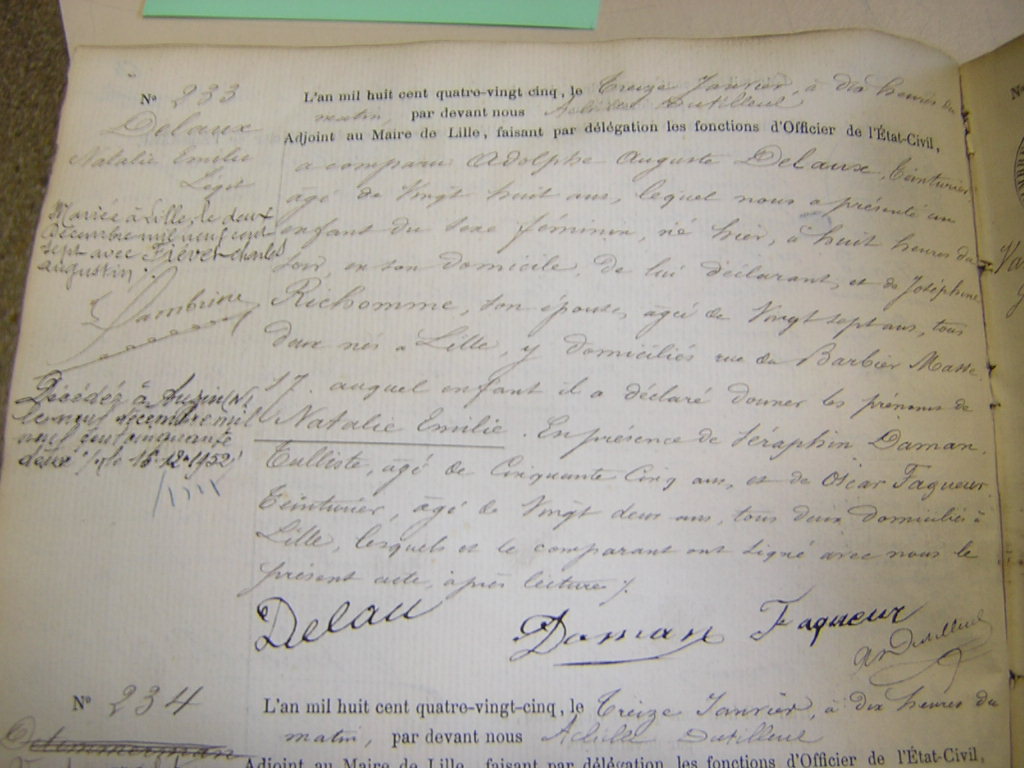 Nº 233
Delaux
Natalie Emilie
Légit
Mariée à Lille, le deux
Décembre mil neuf cent
sept avec Fiévet Charles
Augustin.
Décédée à Anzin (N)
le neuf décembre mil
neuf cent cinquante
deux le 15-12-1952
L'an mil huit cent quatre-vingt cinq, le Treize Janvier, à dix heures du
matin, par devant nous Achille Dutilleul
Adjoint au Maire de Lille, faisant par délégation les fonctions d'Officier de l'État-Civil,
a comparu Adolphe Auguste Delaux, Teinturier,
âgé de Vingt huit ans, lequel nous a présenté un
enfant du sexe féminin, né hier, à huit heures du
soir, en son domicile, de lui déclarant, et de Joséphine
Richomme, son épouse, âgée de Vingt sept ans, tous
deux nés à Lille, y domiciliés rue du Barbier Maës
17. auquel enfant il a déclaré donner les prénoms de
Natalie Emilie. En présence de Séraphin Daman.
Tulliste, âgé de Cinquante Cinq ans, et de Oscar Faqueur
Teinturier, âgé de Vingt deux ans, tous deux domiciliés à
Lille, lesquels et le comparant ont signé avec nous le
présent acte, après lecture /.
Delau Daman Faqueur
Nº 234
L'an mil huit cent quatre-vingt-cinq, le Treize Janvier, à dix heures du
matin, par devant nous Achille Dutilleul
Adjoint au Maire de Lille, faisant par délégation les fonctions d'Officier de l'État-Civil,